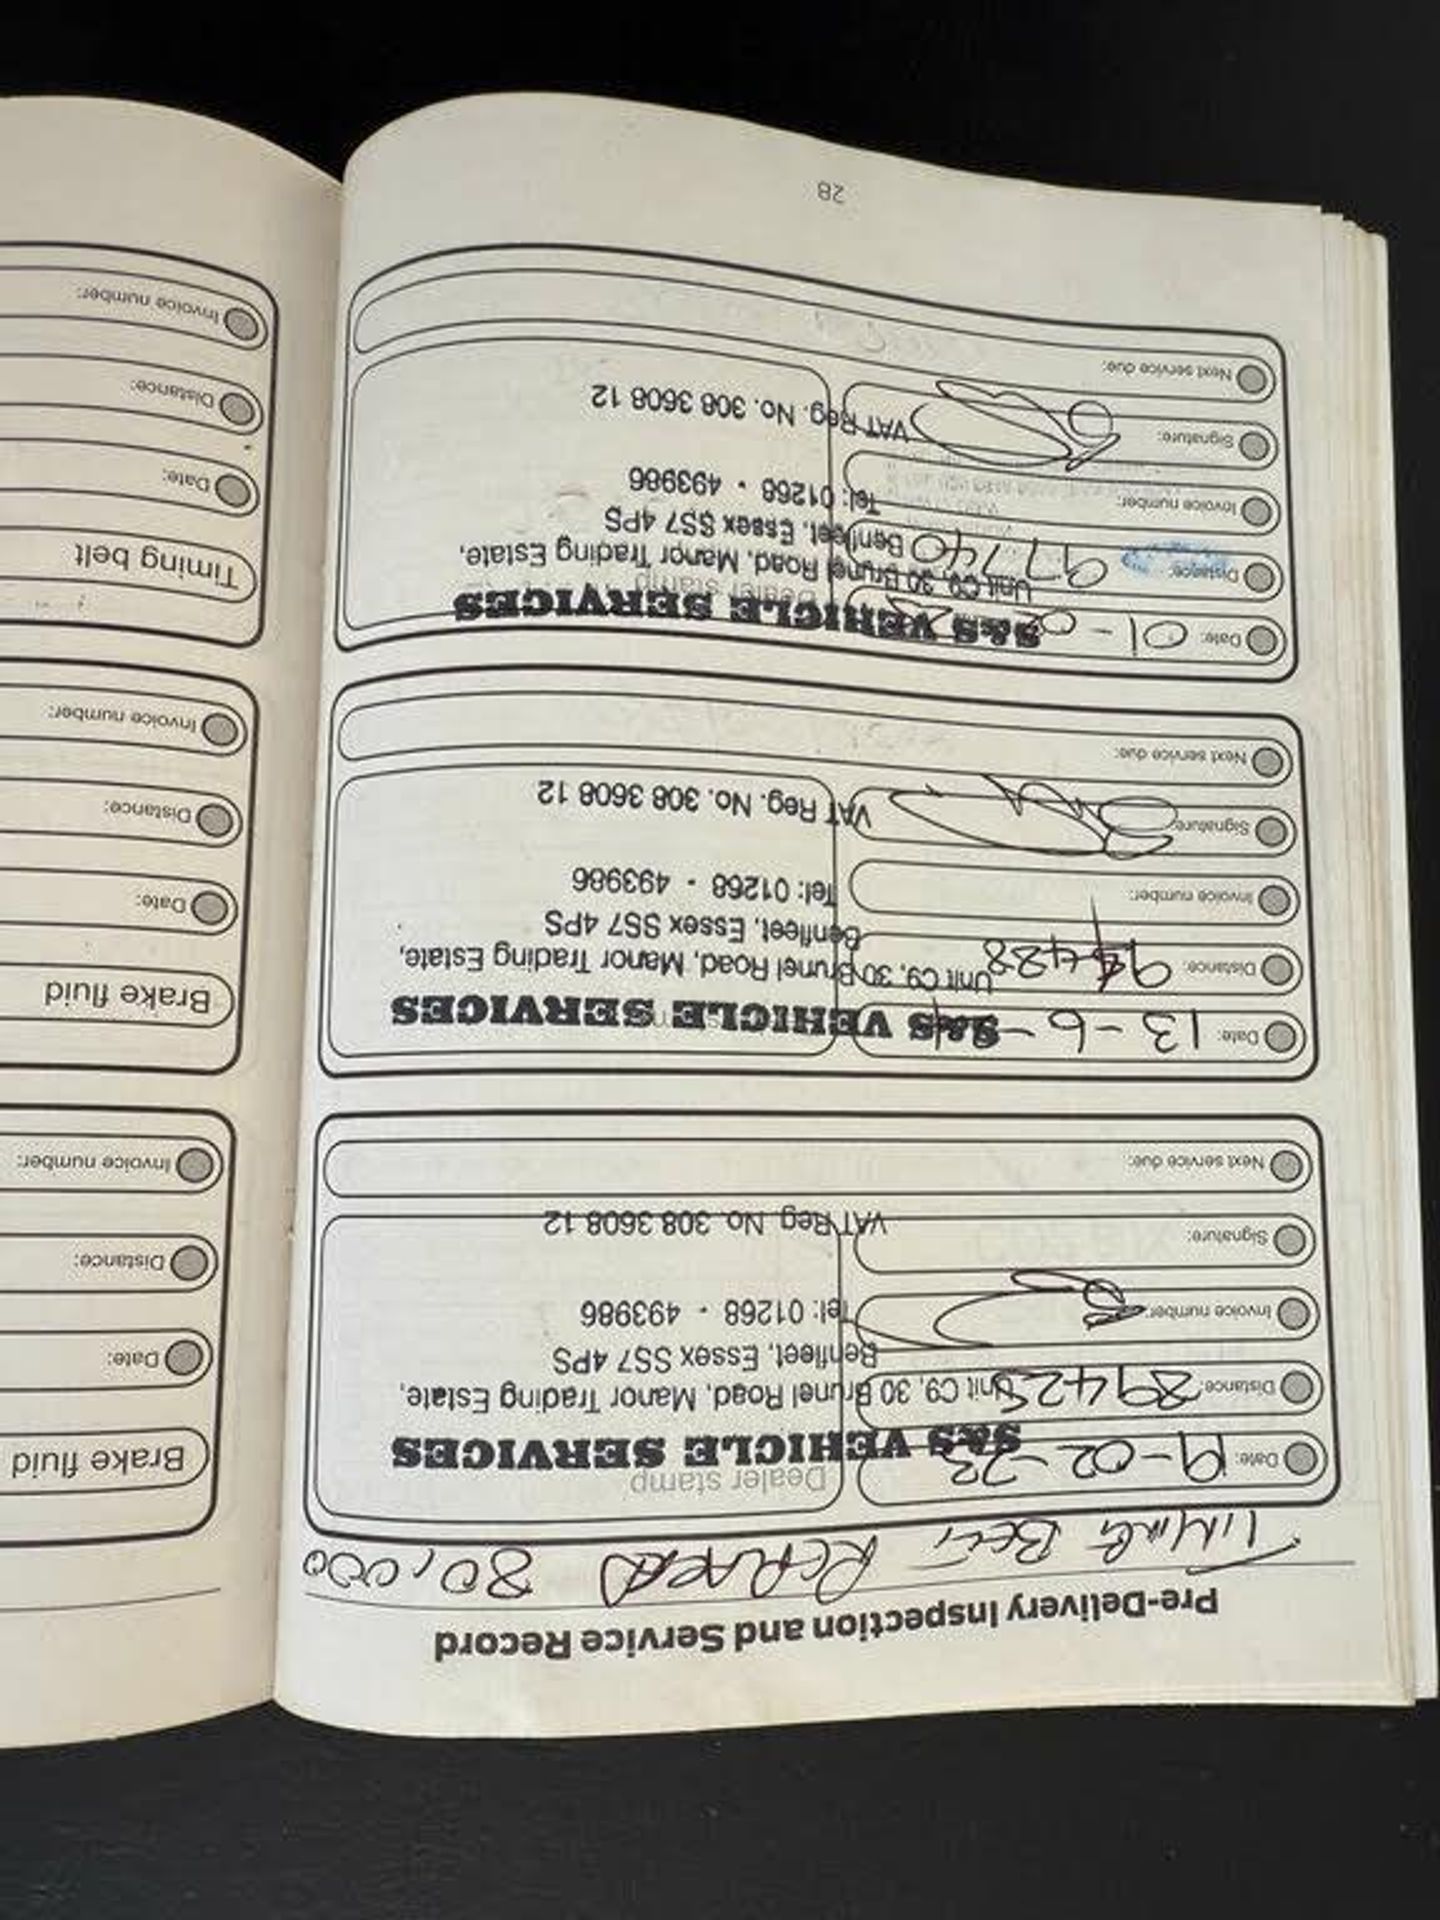 Pre-Delivery Inspection and Service Record
TIMING BELT REPLACED 80,000
Date: 19-02-23
Dealer stamp
S&S VEHICLE SERVICES
Distance: 89425
Unit C9, 30 Brunel Road, Manor Trading Estate,
Benfleet, Essex SS7 4PS
Invoice number:
Tel: 01268 - 493986
Signature:
VAT Reg. No. 308 3608 12
Next service due:
Date: 13-6-
S&S VEHICLE SERVICES
Distance: 94488
Unit C9, 30 Brunel Road, Manor Trading Estate,
Benfleet, Essex SS7 4PS
Invoice number:
Tel: 01268 - 493986
Signature:
VAT Reg. No. 308 3608 12
Next service due:
Date: 01-
S&S VEHICLE SERVICES
Dealer stamp
Distance: 97740
Unit C9, 30 Brunel Road, Manor Trading Estate,
Benfleet, Essex SS7 4PS
Invoice number:
Tel: 01268 - 493986
Signature:
VAT Reg. No. 308 3608 12
Next service due:
28
Brake fluid
Date:
Distance:
Invoice number:
Brake fluid
Date:
Distance:
Invoice number:
Timing belt
Date:
Distance:
Invoice number: